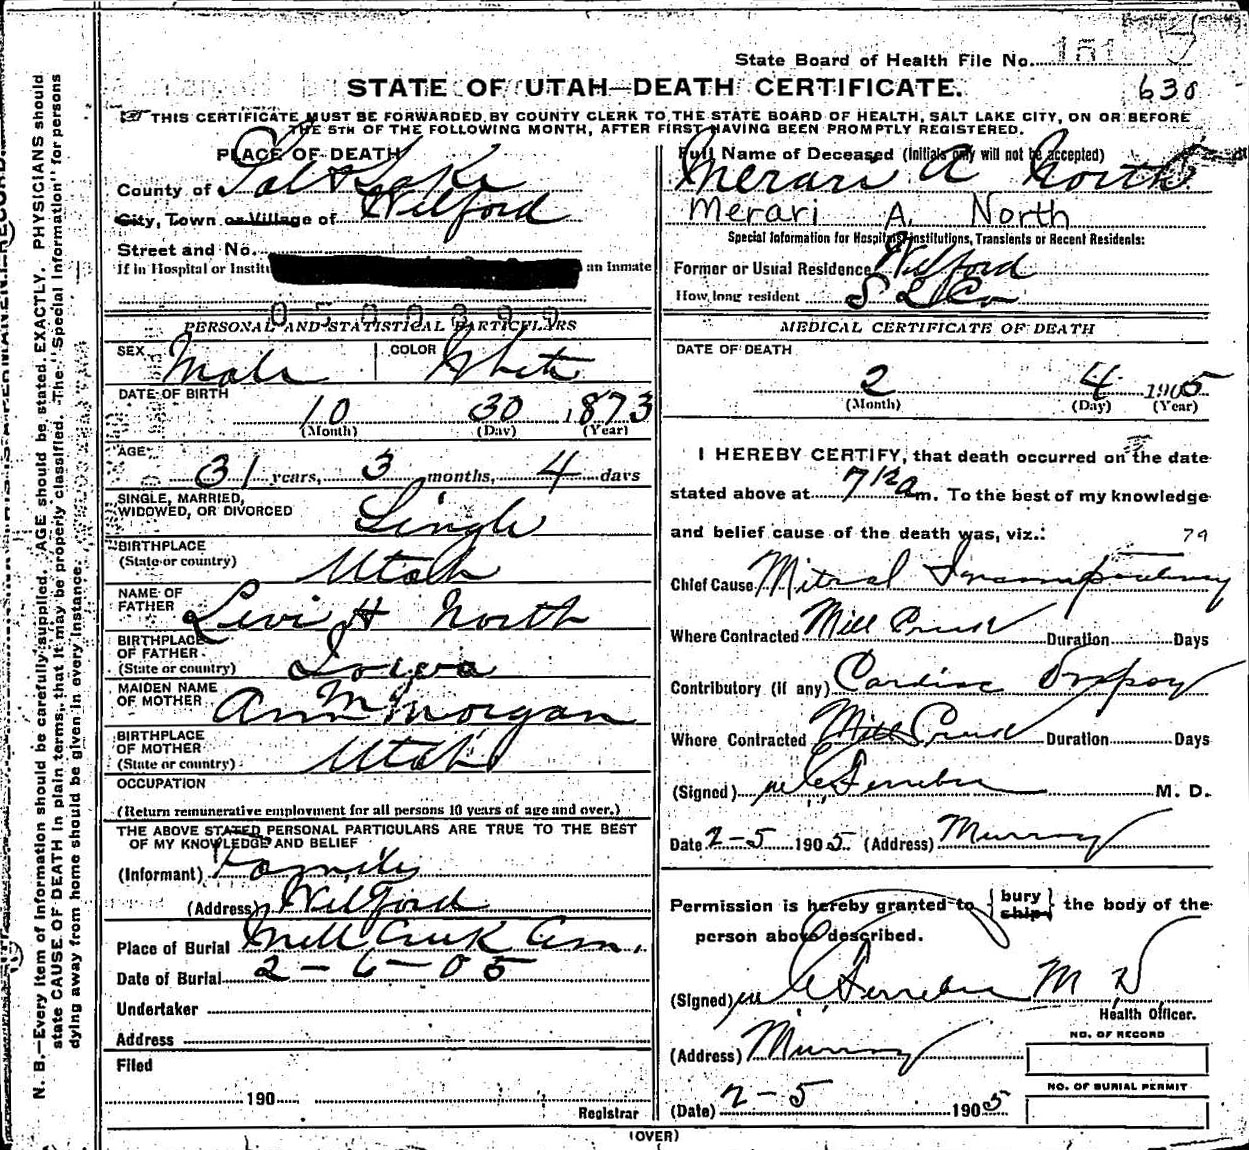 State Board of Health File No. 151
STATE OF UTAH—DEATH CERTIFICATE.
630
THIS CERTIFICATE MUST BE FORWARDED BY COUNTY CLERK TO THE STATE BOARD OF HEALTH, SALT LAKE CITY, ON OR BEFORE
THE 5TH OF THE FOLLOWING MONTH, AFTER FIRST HAVING BEEN PROMPTLY REGISTERED.
PLACE OF DEATH
County of Salt Lake
City, Town or Village of Wilford
Street and No.
If in Hospital or Institu an inmate
0500899
PERSONAL AND STATISTICAL PARTICULARS
SEX Male COLOR White
DATE OF BIRTH
10 30 1873
(Month) (Day) (Year)
AGE
31 years, 3 months, 4 days
SINGLE, MARRIED,
WIDOWED, OR DIVORCED Single
BIRTHPLACE
(State or country) Utah
NAME OF
FATHER Levi H North
BIRTHPLACE
OF FATHER
(State or country) Iowa
MAIDEN NAME
OF MOTHER Ann M Morgan
BIRTHPLACE
OF MOTHER
(State or country) Utah
OCCUPATION
(Return remunerative employment for all persons 10 years of age and over.)
THE ABOVE STATED PERSONAL PARTICULARS ARE TRUE TO THE BEST
OF MY KNOWLEDGE AND BELIEF
(Informant) Family
(Address) Wilford
Place of Burial Mill Creek Cem.
Date of Burial 2-6-05
Undertaker
Address
Filed
190
Registrar
Full Name of Deceased (Initials only will not be accepted)
Merari A North
Merari A. North
Special Information for Hospitals, Institutions, Transients or Recent Residents:
Former or Usual Residence Wilford
How long resident S L Co
MEDICAL CERTIFICATE OF DEATH
DATE OF DEATH
2 4 1905
(Month) (Day) (Year)
I HEREBY CERTIFY, that death occurred on the date
stated above at 7 12 a m. To the best of my knowledge
and belief cause of the death was, viz.: 79
Chief Cause Mitral Incompetency
Where Contracted Mill Creek Duration Days
Contributory (if any) Cardiac Dropsy
Where Contracted Mill Creek Duration Days
(Signed) M. D.
Date 2-5 1905. (Address) Murray
Permission is hereby granted to { bury ship } the body of the
person above described.
(Signed) M D
Health Officer.
(Address) Murray
(Date) 2-5 1905
NO. OF RECORD
NO. OF BURIAL PERMIT
(OVER)
N. B.—Every item of information should be carefully supplied. AGE should be stated EXACTLY. PHYSICIANS should
state CAUSE OF DEATH in plain terms, that it may be properly classified. The "Special Information" for persons
dying away from home should be given in every instance.